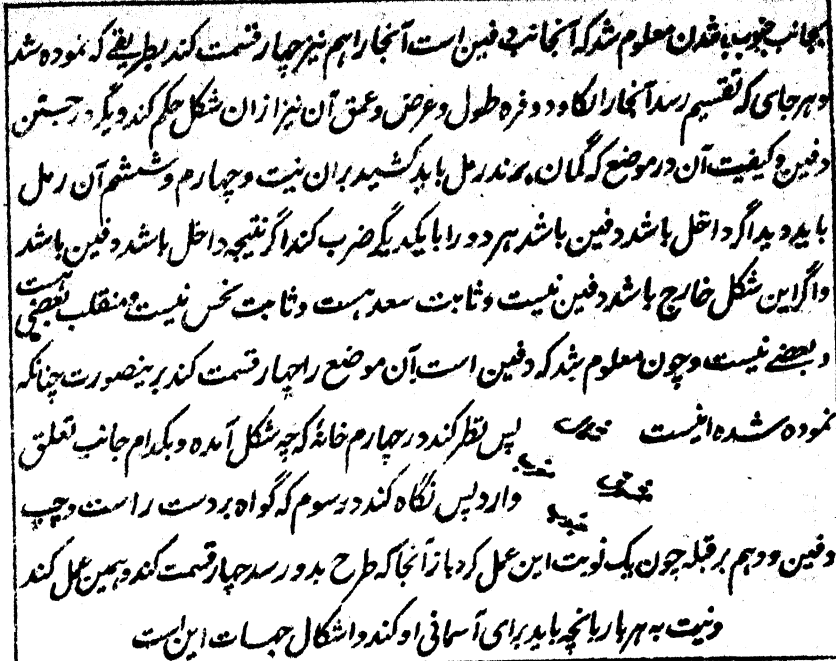 بجانب جنوب باشدن معلوم شد که آنجانب دفین است آنجا را هم نیز چهار قسمت کند بطریقے که نموده شد
و هر جای که تقسیم رسد آنجا را بکاود و وفره طول و عرض و عمق آن نیز ازان شکل حکم کند دیگر در جستن
دفین و کیفیت آن در موضع که گمان برند رمل باید کشید بران نیت و چهارم و ششم آن رمل
باید دید اگر داخل باشد دفین باشد هر دو را بایکدیگر ضرب کند اگر نتیجه داخل باشد دفین باشد
واگر این شکل خارج باشد دفین نیست و ثابت سعد هست و ثابت نحس نیست و منقلب بعضی هست
و بعضے نیست و چون معلوم شد که دفین است آن موضع را چهار قسمت کند برینصورت چنانکه
نموده شده اینست پس نظر کند در چهارم خانه که چه شکل آمده و بکدام جانب تعلق
دارد پس نگاه کند در سوم که گواه بر دست راست و چپ
دفین و دهم بر قبله چون یک نوبت این عمل کرد باز آنجا که طرح بدو رسد چهار قسمت کند و همین عمل کند
ونیت به هر بار بانچه باید برای آسانی او کند و اشکال جهات این است